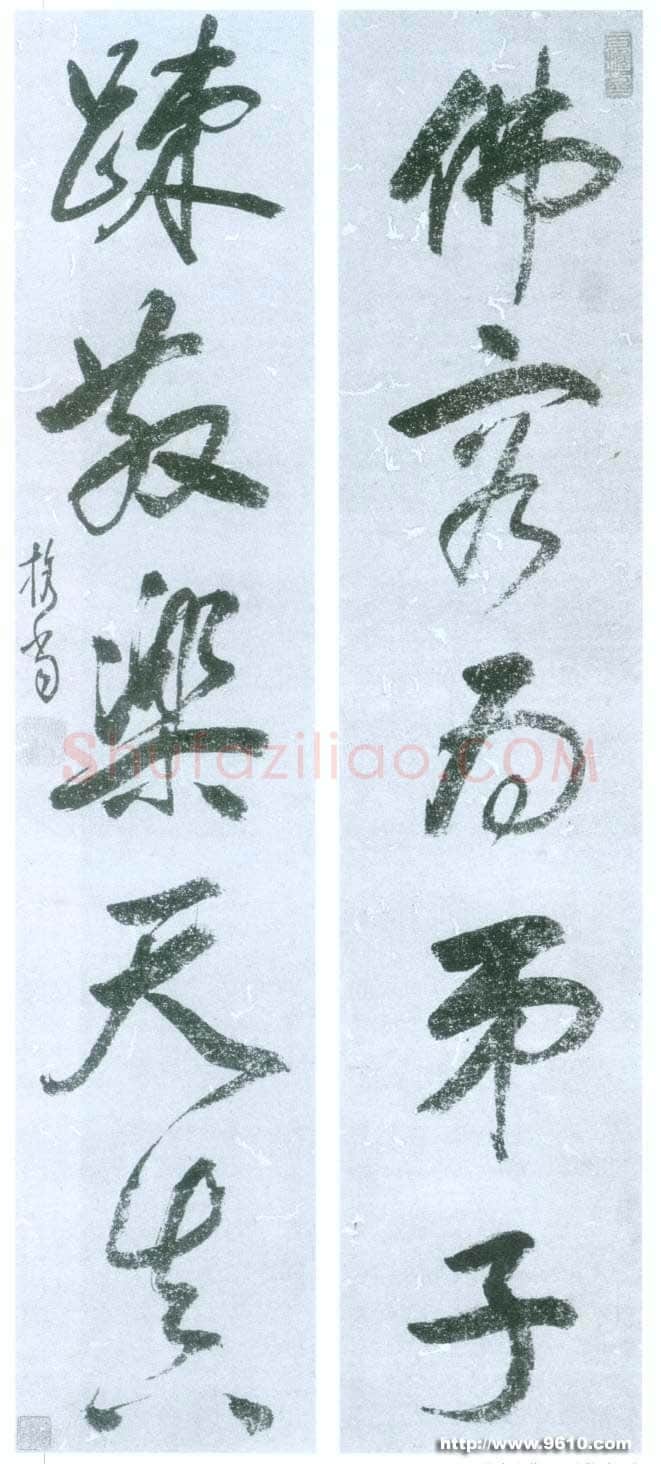 佛容為弟子
踈散樂天真
Shufaziliao.COM
http://www.9610.com